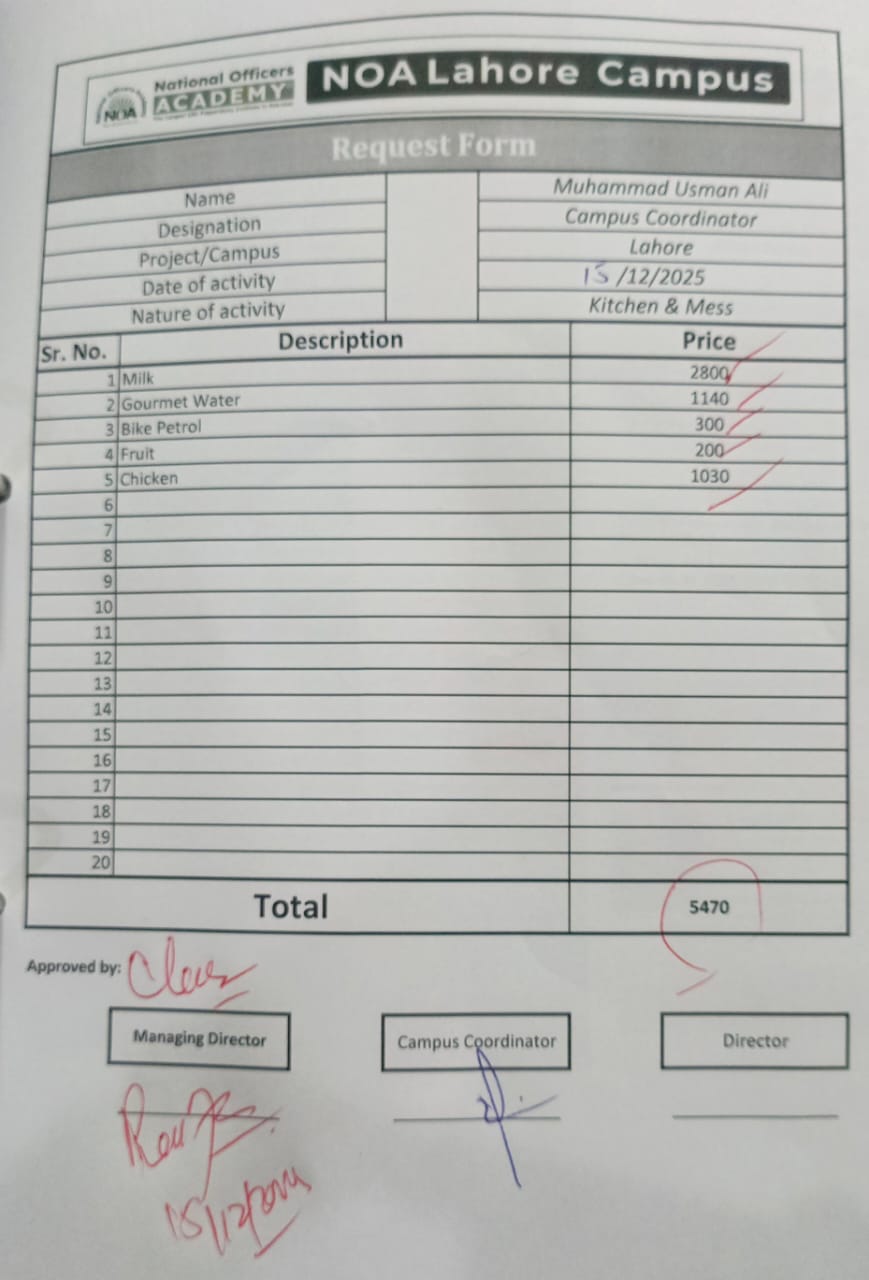 National Officers
ACADEMY
NOA
NOA Lahore Campus
Request Form
Name Muhammad Usman Ali
Designation Campus Coordinator
Project/Campus Lahore
Date of activity 15/12/2025
Nature of activity Kitchen & Mess
Sr. No. Description Price
1 Milk 2800
2 Gourmet Water 1140
3 Bike Petrol 300
4 Fruit 200
5 Chicken 1030
6
7
8
9
10
11
12
13
14
15
16
17
18
19
20
Total 5470
Approved by:
Managing Director Campus Coordinator Director